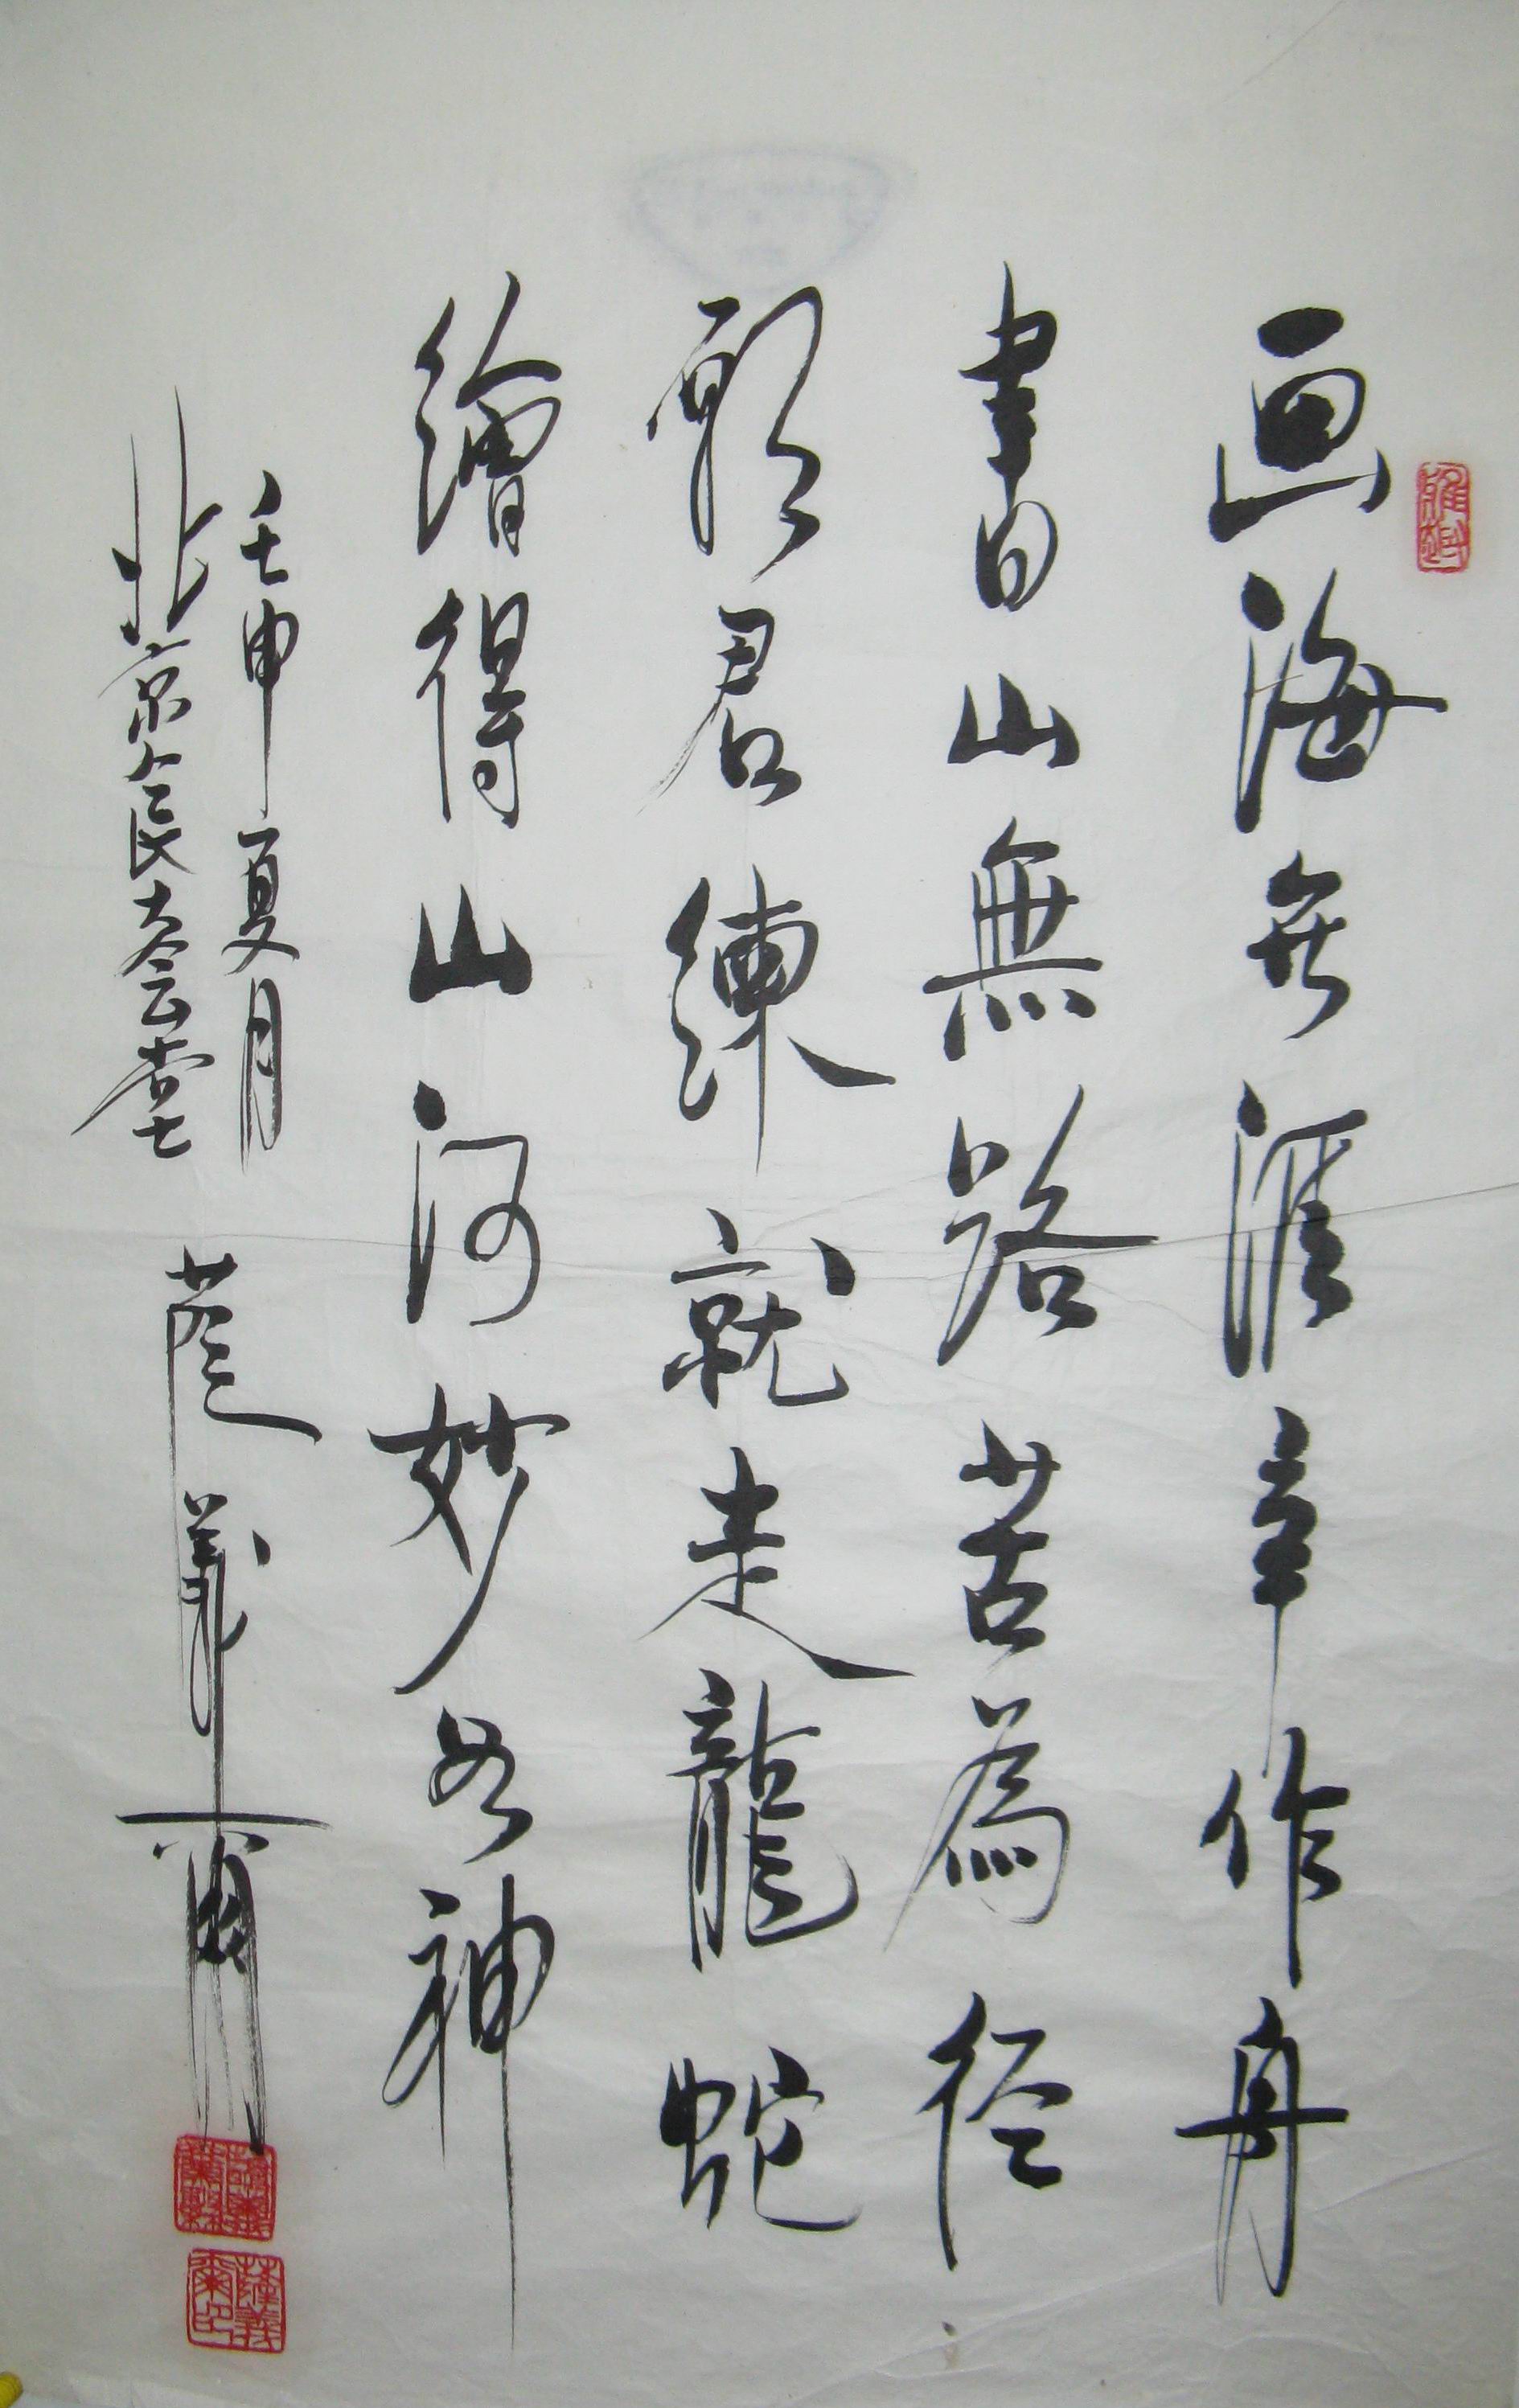 画海无涯辛作舟
書山無路苦為径
願君練就走龍蛇
繪得山河妙如神
壬申夏月
北京人民大會堂
薩義爾